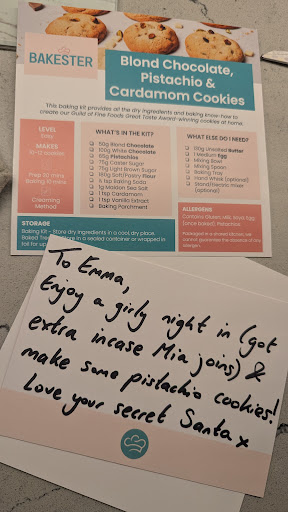 BAKESTER
Blond Chocolate,
Pistachio &
Cardamom Cookies
This baking kit provides all the dry ingredients and baking know-how to
create our Guild of Fine Foods Great Taste Award-winning cookies at home.
LEVEL
Easy
MAKES
10-12 cookies
Prep 30 mins
Baking 10 mins
Creaming
Method
WHAT'S IN THE KIT?
50g Blond Chocolate
100g White Chocolate
65g Pistachios
75g Caster Sugar
75g Light Brown Sugar
180g Soft/Plain Flour
¼ tsp Baking Soda
1g Maldon Sea Salt
1 tsp Cardamom
1 tsp Vanilla Extract
Baking Parchment
WHAT ELSE DO I NEED?
110g Unsalted Butter
1 Medium Egg
Mixing Bowl
Mixing Spoon
Baking Tray
Hand Whisk (optional)
Stand/electric mixer
(optional)
STORAGE
Baking Kit - Store dry ingredients in a cool, dry place.
Baked Treats - Store in a sealed container or wrapped in
foil for up
ALLERGENS
Contains Gluten, Milk, Soya, Egg
(once baked), Pistachios
Packaged in a shared kitchen, we
cannot guarantee the absence of any
allergen.
To Emma,
Enjoy a girly night in (got
extra incase Mia joins) &
make some pistachio cookies!
Love your secret Santa x